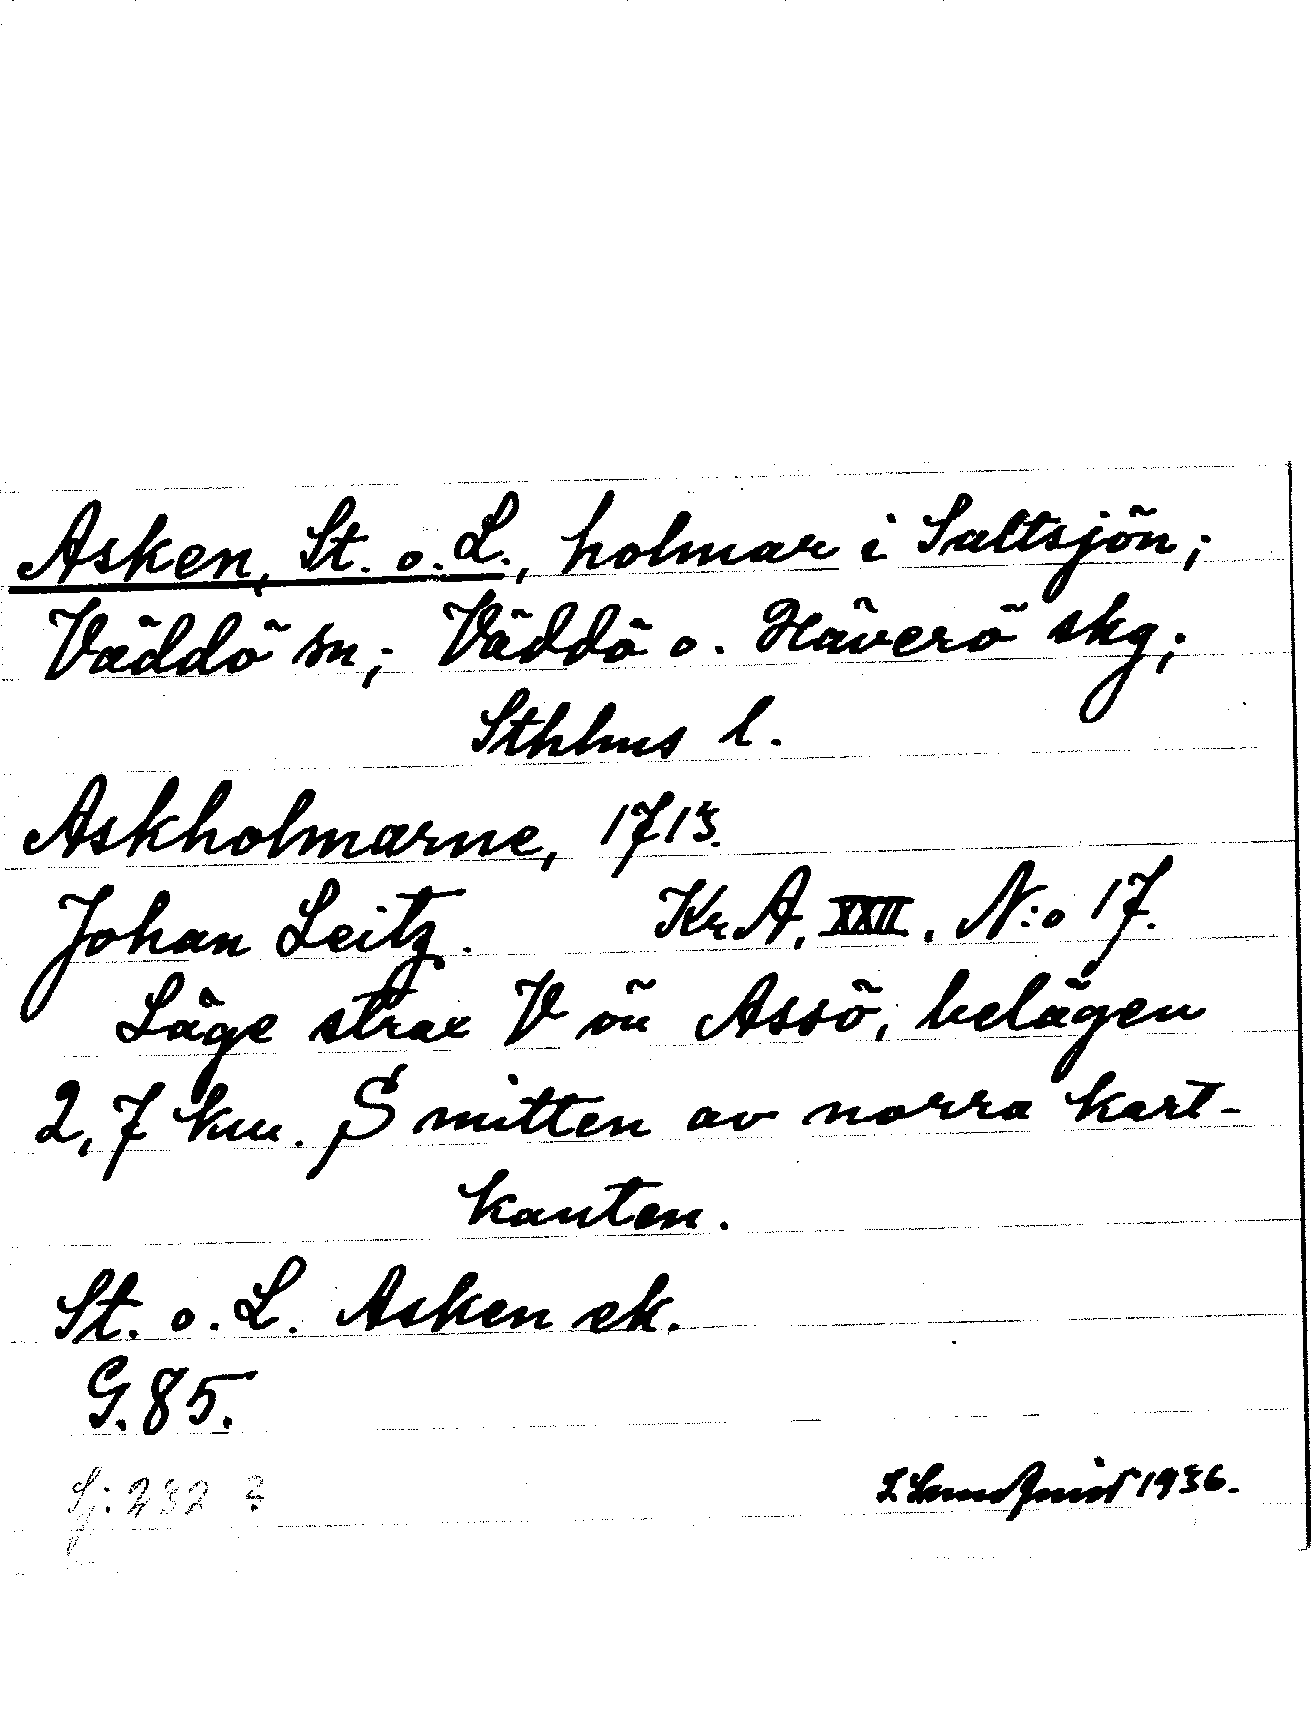 Asken, St. o. L., holmar i Saltsjön;
Väddö sn; Väddö o. Häverö skg;
Sthlms l.
Askholmarne, 1713.
Johan Leitz. Kr. A. XXII. N:o 17.
Läge strax V ön Assö, belägen
2,7 km. S mitten av norra kart-
kanten.
St. o. L. Asken ek.
G. 85.
Sj: 232 2
1936.